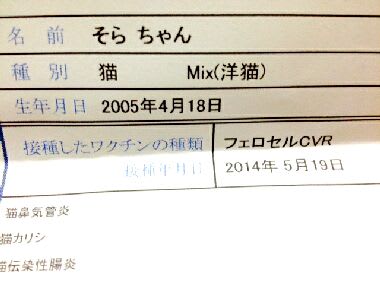 名前 そら ちゃん
種別 猫 Mix(洋猫)
生年月日 2005年4月18日
接種したワクチンの種類 フェロセルCVR
接種年月日 2014年 5月19日
猫鼻気管炎
猫カリシ
猫伝染性腸炎